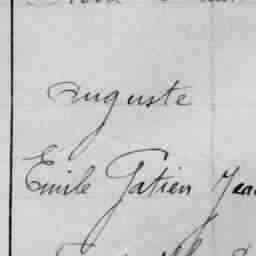 Auguste
Emile Gatien Jea